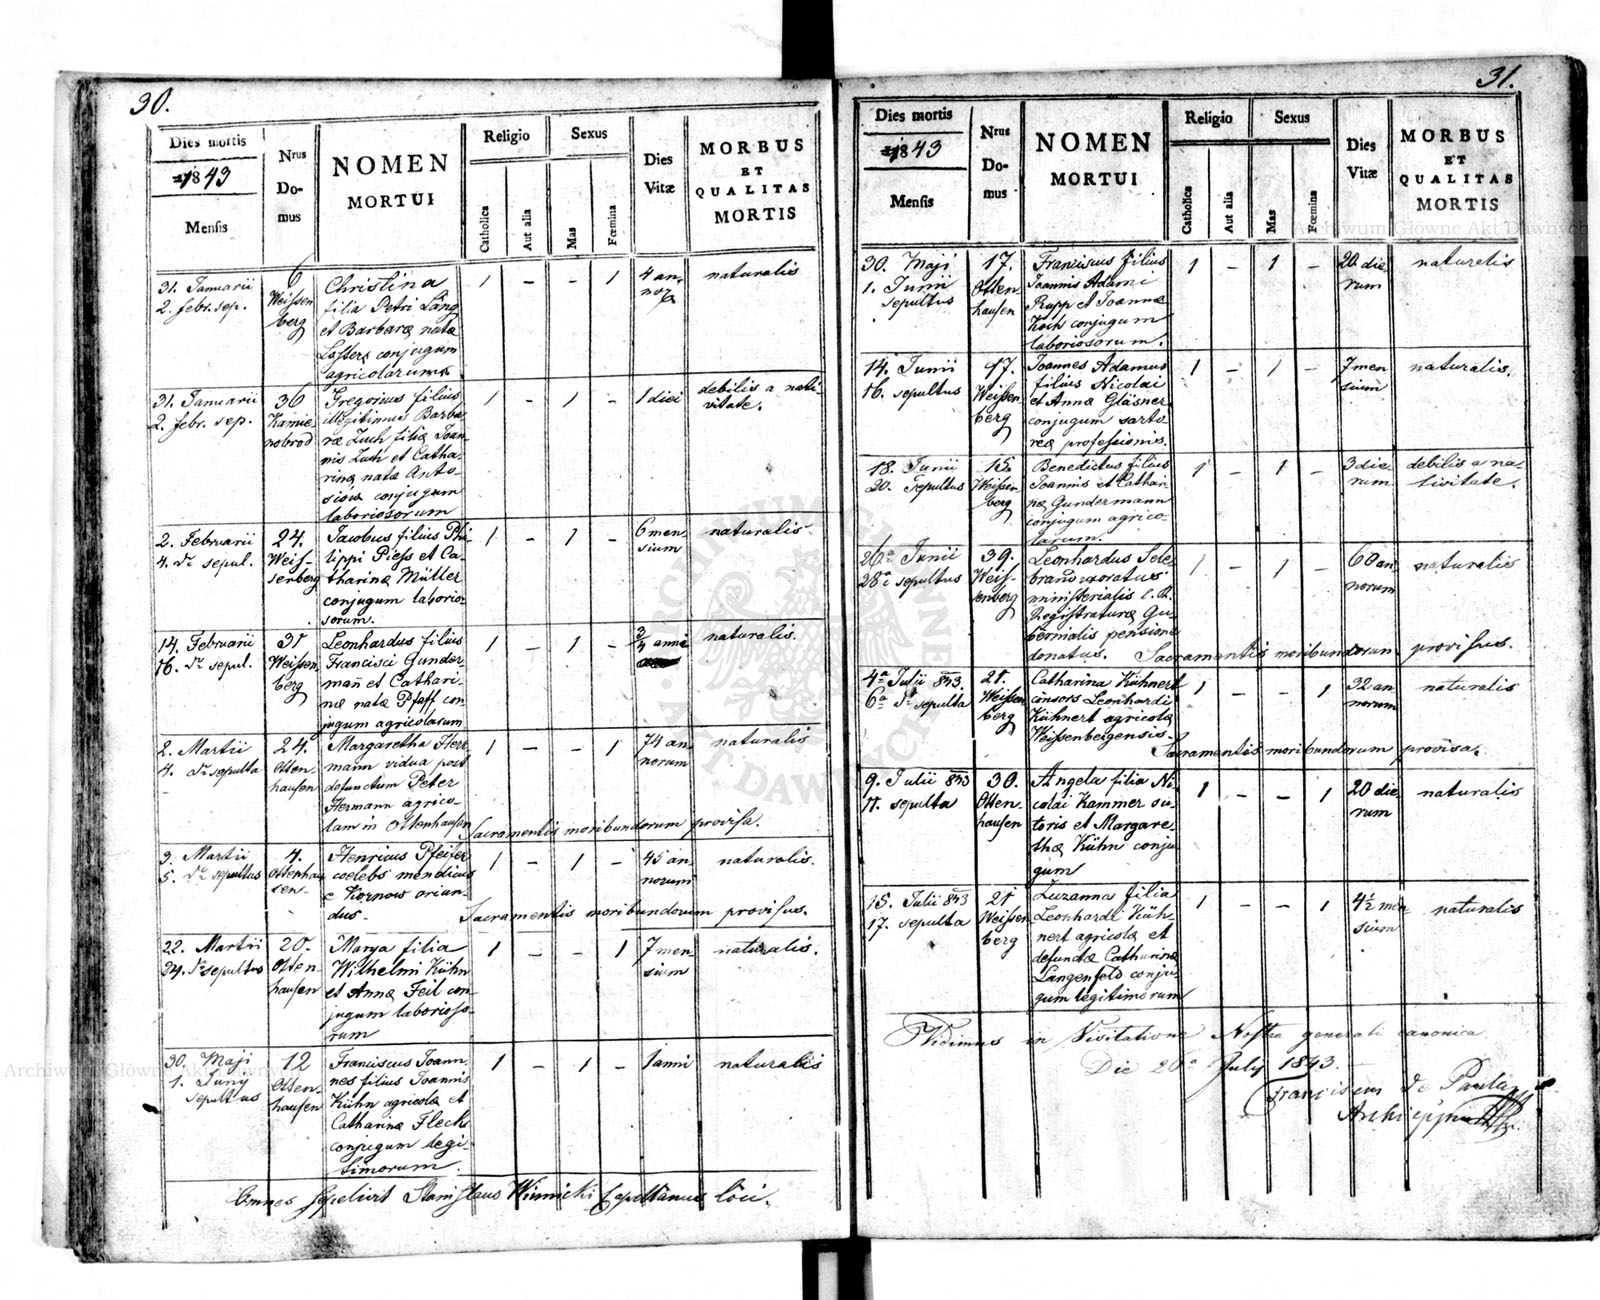 30.
Dies mortis
1843
Mensis
Nrus
Do-
mus
NOMEN
MORTUI
Religio
Catholica
Aut alia
Sexus
Mas
Fœmina
Dies
Vitæ
MORBUS
ET
QUALITAS
MORTIS
31. Januarii
2. febr. sep.
6
Weissen
berg
Christina
filia Petri Lang
et Barbaræ natæ
conjugum
agricolarum
1 – – 1
4 an-
naturalis
31. Januarii
2. febr. sep.
36
Kamie-
nobrod
Gregorius filius
illegitimus Barba-
ræ Zuch filiæ Joan-
nis Zuch et Catha-
rinæ natæ Anto-
conjugum
laboriosorum
1 – 1 –
1 diei
debilis a nati-
vitate.
2. Februarii
4. di sepul.
24.
Weis-
senberg
Jacobus filius Phi-
lippi Piess et Ca-
tharinæ Müller
conjugum laborio-
sorum.
1 – 1 –
6 men-
sium
naturalis
14. Februarii
16. di sepul.
Weissen
berg
Leonhardus filius
Francisci Gunder-
mañ et Cathari-
næ natæ Pfaff con-
jugum agricolarum
1 – 1 –
3/4 anni
naturalis.
2. Martii
4. di sepulta
24.
Otten-
hausen
Margaretha Herr-
mann vidua post
defunctum Peter
Hermann agrico-
lam in Ottenhausen
1 – – 1
74 an-
norum
naturalis
Sacramentis moribundorum provisa.
3. Martii
5. di sepultus
4.
Ottenhau
sen
Henricus Pfeifer
coelebs mendicus
e Kornow oriun-
dus.
1 – 1 –
45 an-
norum
naturalis.
Sacramentis moribundorum provisus.
22. Martii
24. di sepultus
20.
Otten-
hausen
Marya filia
Wilhelmi Kühn
et Annæ Feil con-
jugum labrioso-
rum
1 – – 1
7 men-
sium
naturalis.
30. Maji
1. Juny
sepultus
12
Otten-
hausen
Franciscus Joan-
nes filius Joannis
Kühn agricolæ et
Catharinæ Fleck
conjugum legi-
timorum.
1 – 1 –
1 anni
naturalis
Omnes sepelivit Stanislaus Winnicki Capellanus loci.
31.
Dies mortis
1843
Mensis
Nrus
Do-
mus
NOMEN
MORTUI
Religio
Catholica
Aut alia
Sexus
Mas
Fœmina
Dies
Vitæ
MORBUS
ET
QUALITAS
MORTIS
30. Maji
1. Junii
sepultus
17.
Otten-
hausen
Franciscus filius
Joannis Adami
Rupp et Joannæ
Koch conjugum
laboriosorum.
1 – 1 –
20 die-
rum
naturalis
14. Junii
16. sepultus
17.
Weissen
berg
Joannes Adamus
filius Nicolai
et Annæ Gläsner
conjugum sarto-
reæ professionis.
1 – 1 –
7 men
sium
naturalis.
18. Junii
20. sepultus
15.
Weissen
berg
Benedictus filius
Joannis et Cathari-
næ Gundermann
conjugum agrico-
larum.
1 – 1 –
3 die-
rum
debilis a na-
tivitate.
26a Junii
28a sepultus
39.
Weis-
senberg
Leonhardus
ministerialis C. R.
Registraturæ Gu-
bernialis pensione
donatus.
1 – 1 –
60 an
norum
naturalis
Sacramentis moribundorum provisus.
4a Julii 843.
6a di sepulta
21.
Weissen
berg
Catharina Kühnert
consors Leonhardi
Kühnert agricolæ
Weissenbergensis.
1 – – 1
32 an-
norum
naturalis
Sacramentis moribundorum provisa.
9. Julii 843
11. sepulta
30.
Otten-
hausen
Angela filia Ni-
colai Kammer su-
toris et Margare-
thæ Kühn conju
gum
1 – – 1
20 die-
rum
naturalis
15. Julii 843
17. sepulta
21
Weissen
berg
Zuzanna filia
Leonhardi Küh-
nert agricolæ et
defunctæ Catharinæ
Langenfeld conju-
gum legitimorum
1 – – 1
4½ men
sium
naturalis
Vidimus in Visitatione Nostra generali canonica
Die 20a July 1843.
Franciscus de Paula
Archieppus
Archiwum Główne Akt Dawnych
Archiwum Główne Akt Dawnych
ARCHIWUM GŁÓWNE AKT DAWNYCH